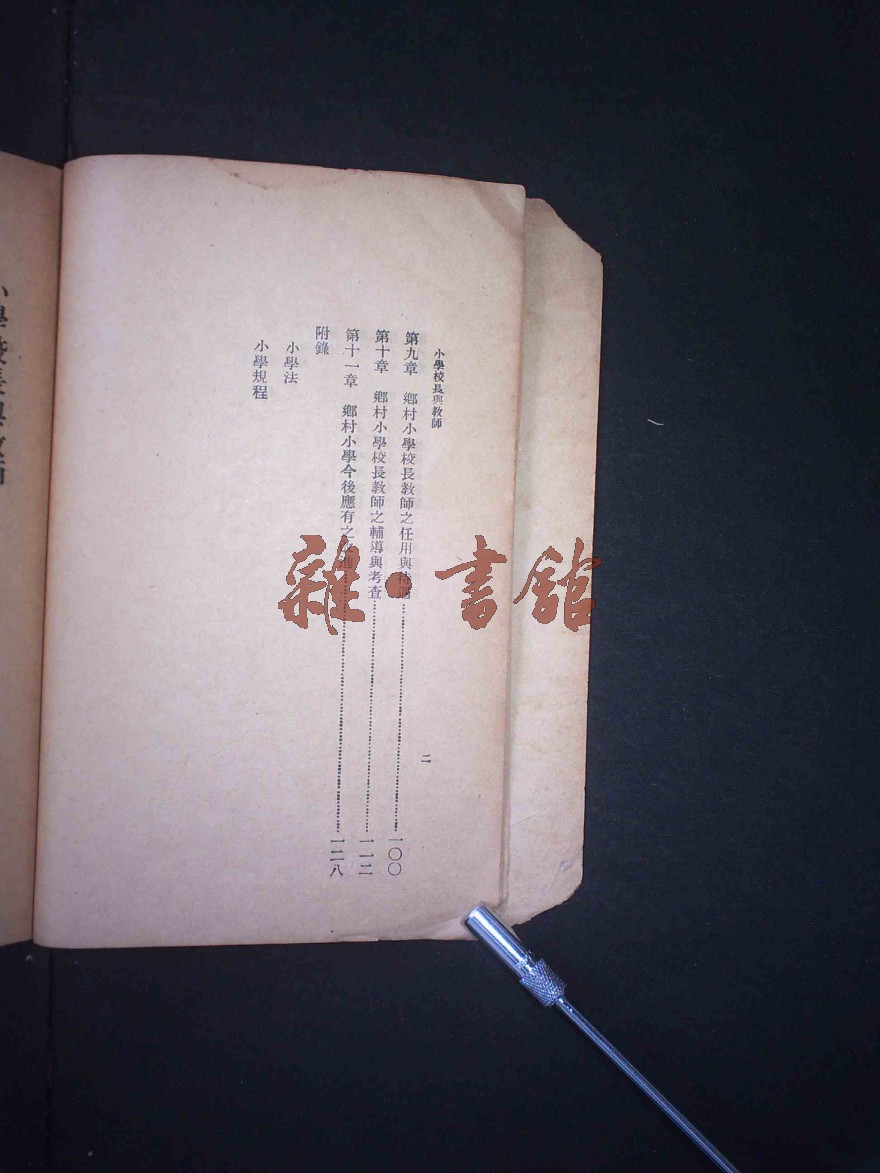 小學校長與教師
二
第九章 鄉村小學校長教師之任用與待遇 一〇〇
第十章 鄉村小學校長教師之輔導與考查 一一二
第十一章 鄉村小學今後應有之 一二八
附錄
小學法
小學規程
雜·書館
小學校長與教師